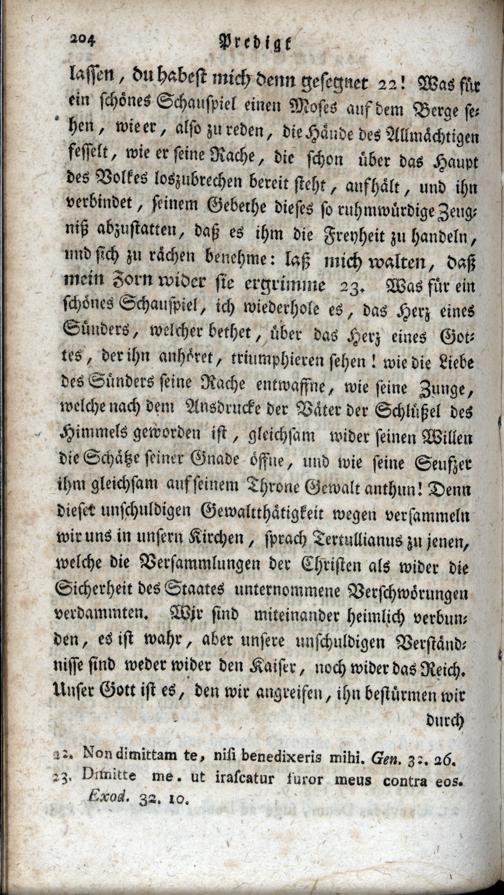 204 Predigt
lassen, du habest mich denn gesegnet 22! Was für
ein schönes Schauspiel einen Moses auf dem Berge se-
hen, wie er, also zu reden, die Hände des Allmächtigen
fesselt, wie er seine Rache, die schon über das Haupt
des Volkes loszubrechen bereit steht, aufhält, und ihn
verbindet, seinem Gebethe dieses so ruhmwürdige Zeug-
niß abzustatten, daß es ihm die Freyheit zu handeln,
und sich zu rächen benehme: laß mich walten, daß
mein Zorn wider sie ergrimme 23. Was für ein
schönes Schauspiel, ich wiederhole es, das Herz eines
Sünders, welcher bethet, über das Herz eines Got-
tes, der ihn anhöret, triumphieren sehen! wie die Liebe
des Sünders seine Rache entwaffne, wie seine Zunge,
welche nach dem Ausdrucke der Väter der Schlüßel des
Himmels geworden ist, gleichsam wider seinen Willen
die Schätze seiner Gnade öffne, und wie seine Seufzer
ihm gleichsam auf seinem Throne Gewalt anthun! Denn
dieser unschuldigen Gewaltthätigkeit wegen versammeln
wir uns in unsern Kirchen, sprach Tertullianus zu jenen,
welche die Versammlungen der Christen als wider die
Sicherheit des Staates unternommene Verschwörungen
verdammten. Wir sind miteinander heimlich verbun-
den, es ist wahr, aber unsere unschuldigen Verständ-
nisse sind weder wider den Kaiser, noch wider das Reich.
Unser Gott ist es, den wir angreifen, ihn bestürmen wir
durch
22. Non dimittam te, nisi benedixeris mihi. Gen. 32. 26.
23. Dimitte me. ut irascatur furor meus contra eos.
Exod. 32. 10.